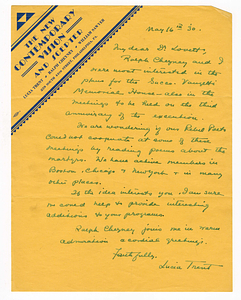 THE NEW
CONTEMPORARY
VISION
AND VERSE
LUCIA TRENT • RALPH CHEYNEY • WILLIAM
May 16th 30.
My dear Dr Lovett -
Ralph Cheyney and I
are most interested in the
plans for the Sacco-Vanzetti
Memorial House - also in the
meetings to be held on the third
anniversary of the execution.
We are wondering if our Rebel Poets
could not cooperate at some of these
meetings by reading poems about the
martyrs. We have active members in
Boston, Chicago & New York & in many
other places.
If the idea interests you, I am sure
we could help to provide interesting
additions to your programs.
Ralph Cheyney joins me in warm
admiration & cordial greetings.
Faithfully,
Lucia Trent